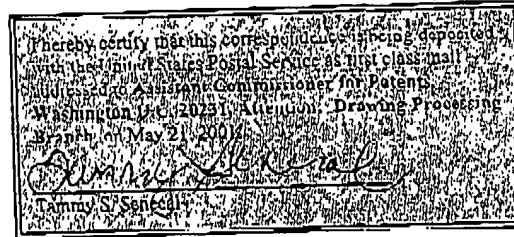 I hereby certify that this correspondence is being deposited
with the United States Postal Service as first class mail
addressed to Assistant Commissioner for Patents,
Washington D.C. 20231, Attention: Drawing Processing
Branch on May 21, 2001.
Tammy S. Senecal
Tammy S. Senecal